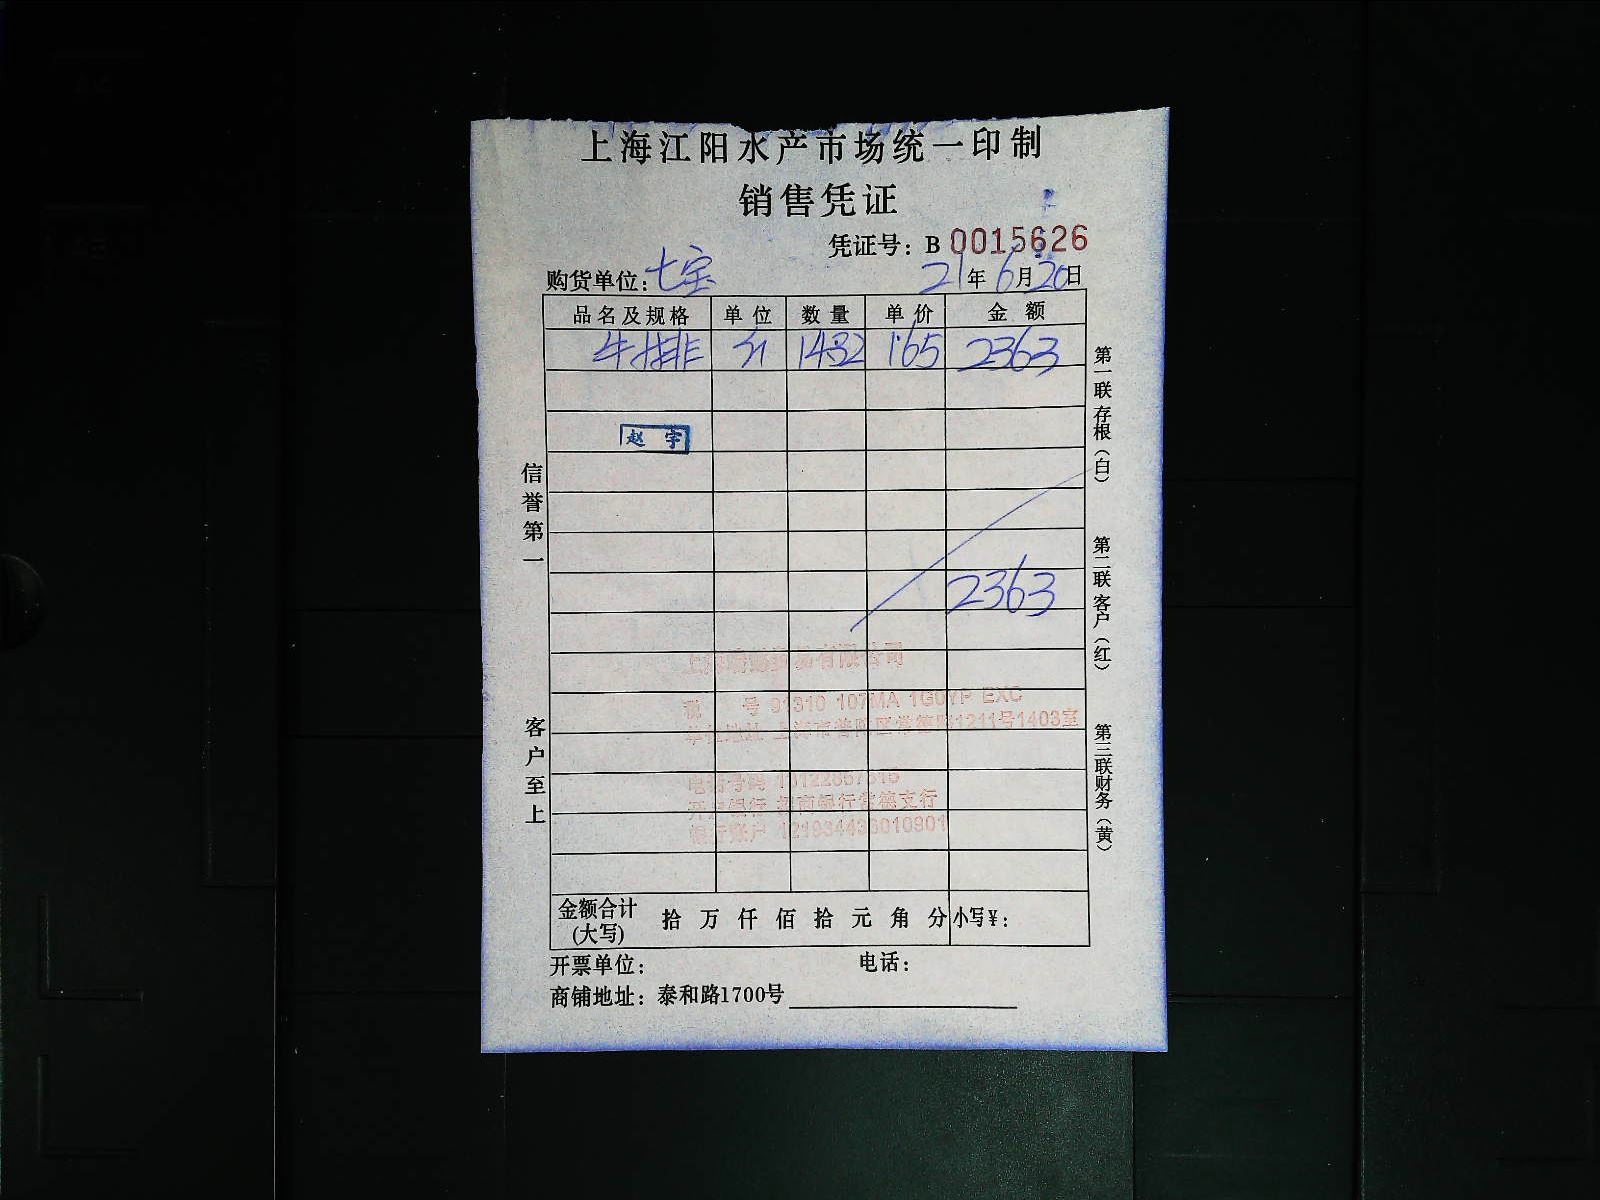 上海江阳水产市场统一印制
销售凭证
凭证号：B 0015626
购货单位：七宝 21年6月20日
品名及规格 单位 数量 单价 金额
牛排 斤 1432 1.65 2363
赵宇
2363
有限公司
税 号 91310 107MA 1G0YP EXC
上海市普陀区常德路1211号1403室
电话号码
开户银行 招商银行常德支行
银行账户
金额合计(大写) 拾 万 仟 佰 拾 元 角 分 小写¥：
开票单位： 电话：
商铺地址：泰和路1700号
信誉第一
客户至上
第一联存根（白）
第二联客户（红）
第三联财务（黄）